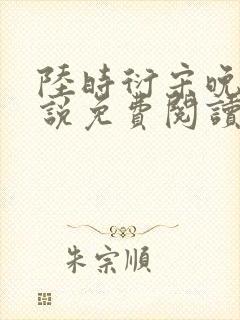 陸時衍宋晚
説免費閱讀
朱宗順